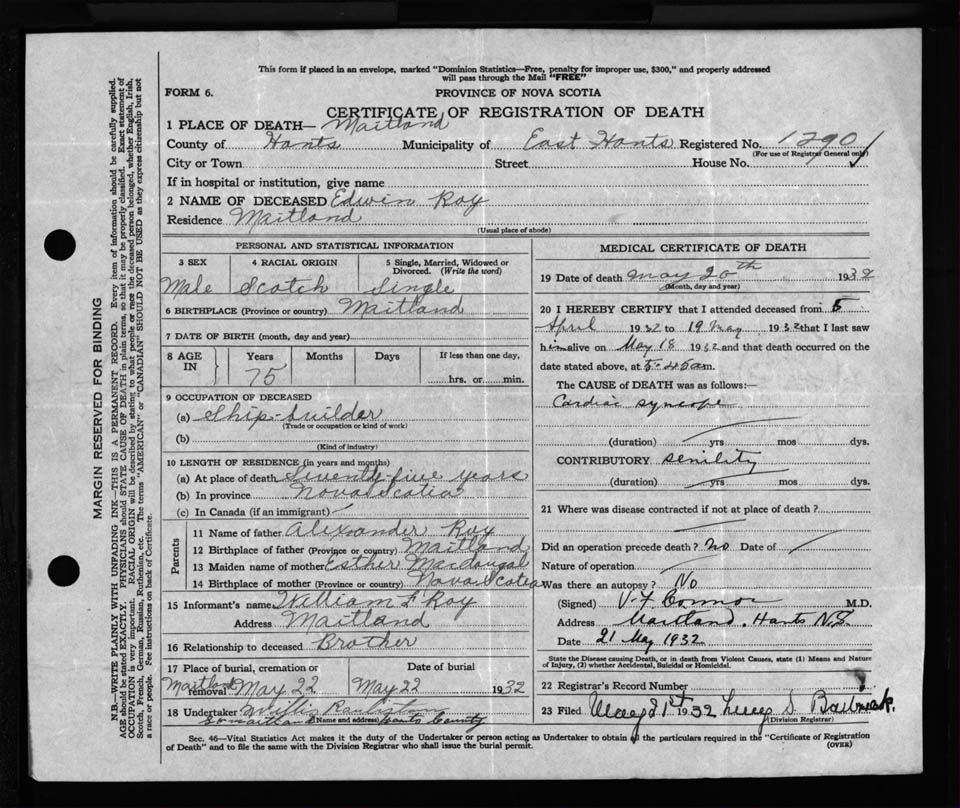 This form if placed in an envelope, marked "Dominion Statistics—Free, penalty for improper use, $300," and properly addressed
will pass through the Mail "FREE"
FORM 6.
PROVINCE OF NOVA SCOTIA
CERTIFICATE OF REGISTRATION OF DEATH
1 PLACE OF DEATH— Maitland
County of Hants Municipality of East Hants Registered No. 1290
(For use of Registrar General only)
City or Town Street House No.
If in hospital or institution, give name
2 NAME OF DECEASED Edwin Roy
Residence Maitland
(Usual place of abode)
PERSONAL AND STATISTICAL INFORMATION
3 SEX 4 RACIAL ORIGIN 5 Single, Married, Widowed or
Divorced. (Write the word)
Male Scotch Single
6 BIRTHPLACE (Province or country) Maitland
7 DATE OF BIRTH (month, day and year)
8 AGE IN Years Months Days If less than one day,
75 hrs. or min.
9 OCCUPATION OF DECEASED
(a) Ship-builder
(Trade or occupation or kind of work)
(b)
(Kind of industry)
10 LENGTH OF RESIDENCE (in years and months)
(a) At place of death Seventy five years
(b) In province Nova Scotia
(c) In Canada (if an immigrant)
Parents
11 Name of father Alexander Roy
12 Birthplace of father (Province or country) Maitland
13 Maiden name of mother Esther Macdougal
14 Birthplace of mother (Province or country) Nova Scotia
15 Informant's name William F Roy
Address Maitland
16 Relationship to deceased Brother
17 Place of burial, cremation or Date of burial
Maitland removal May 22 May 22 1932
18 Undertaker Willis
So maitland Name and address Hants County
MEDICAL CERTIFICATE OF DEATH
19 Date of death May 20th 1932
(Month, day and year)
20 I HEREBY CERTIFY that I attended deceased from 5
April 1932 to 19 May 1932 that I last saw
him alive on May 18 1932 and that death occurred on the
date stated above, at 5.45 a m.
The CAUSE of DEATH was as follows:—
Cardiac syncope
(duration) yrs mos dys.
CONTRIBUTORY senility
(duration) yrs mos dys.
21 Where was disease contracted if not at place of death?
Did an operation precede death? No Date of
Nature of operation
Was there an autopsy? No
(Signed) V. F. Connor M.D.
Address Maitland. Hants N.S.
Date 21 May 1932
State the Disease causing Death, or in death from Violent Causes, state (1) Means and Nature
of Injury, (2) whether Accidental, Suicidal or Homicidal.
22 Registrar's Record Number
23 Filed May 21st 1932 Lucy S.
(Division Registrar)
Sec. 46—Vital Statistics Act makes it the duty of the Undertaker or person acting as Undertaker to obtain all the particulars required in the "Certificate of Registration
of Death" and to file the same with the Division Registrar who shall issue the burial permit. (OVER)
MARGIN RESERVED FOR BINDING
N.B.—WRITE PLAINLY WITH UNFADING INK—THIS IS A PERMANENT RECORD. Every item of information should be carefully supplied.
AGE should be stated EXACTLY. PHYSICIANS should STATE CAUSE OF DEATH in plain terms, so that it may be properly classified. Exact statement of
OCCUPATION is very important. RACIAL ORIGIN will be described by stating to what people or race the deceased person belonged, whether English, Irish,
Scotch, French, German, Russian, Ruthenian, etc. The terms "AMERICAN" or "CANADIAN" SHOULD NOT BE USED as they express citizenship but not
a race or people. See instructions on back of Certificate.